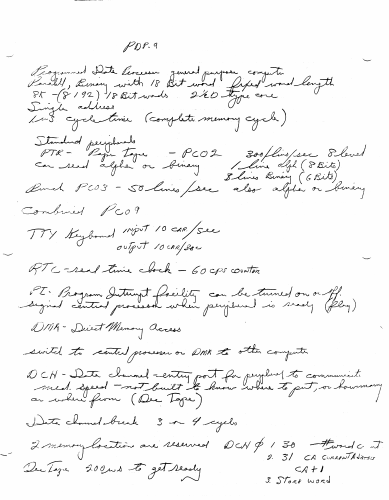 PDP.9
Programmed Data Processor general purpose computer
Parallel, Binary with 18 Bit word fixed word length
8K - (8192) 18 Bit words 2½D type core
Single address
1 cycle time (complete memory cycle)
Standard peripherals
PTR - Paper Tape - PC02 300/line/sec 8 level
can read alpha or binary 1 line alph (8 Bits)
3 lines Binary (6 Bits)
Punch PC03 - 50 lines/sec also alpha or binary
Combined PC09
TTY Keyboard INPUT 10 CAR/sec
OUTPUT 10 CAR/sec
RTC = real time clock - 60 CPS COUNTER
PI- Program Interrupt facility can be turned on or off
signal central processor when peripheral is ready (flag)
DMA - Direct Memory Access
switch to central processor or DMA to other computer
DCH - Data channel - entry port for peripheral to communicate
med. speed - not built to know where to put, or how many
or where from (Dec Tape)
Data channel break 3 or 4 cycles
2 memory location are reserved DCH ∅ 1. 30 word c
2. 31 CA CURRENT ADDRESS
CA+1
3. START WORD
Dec Tape 200 ms to get ready